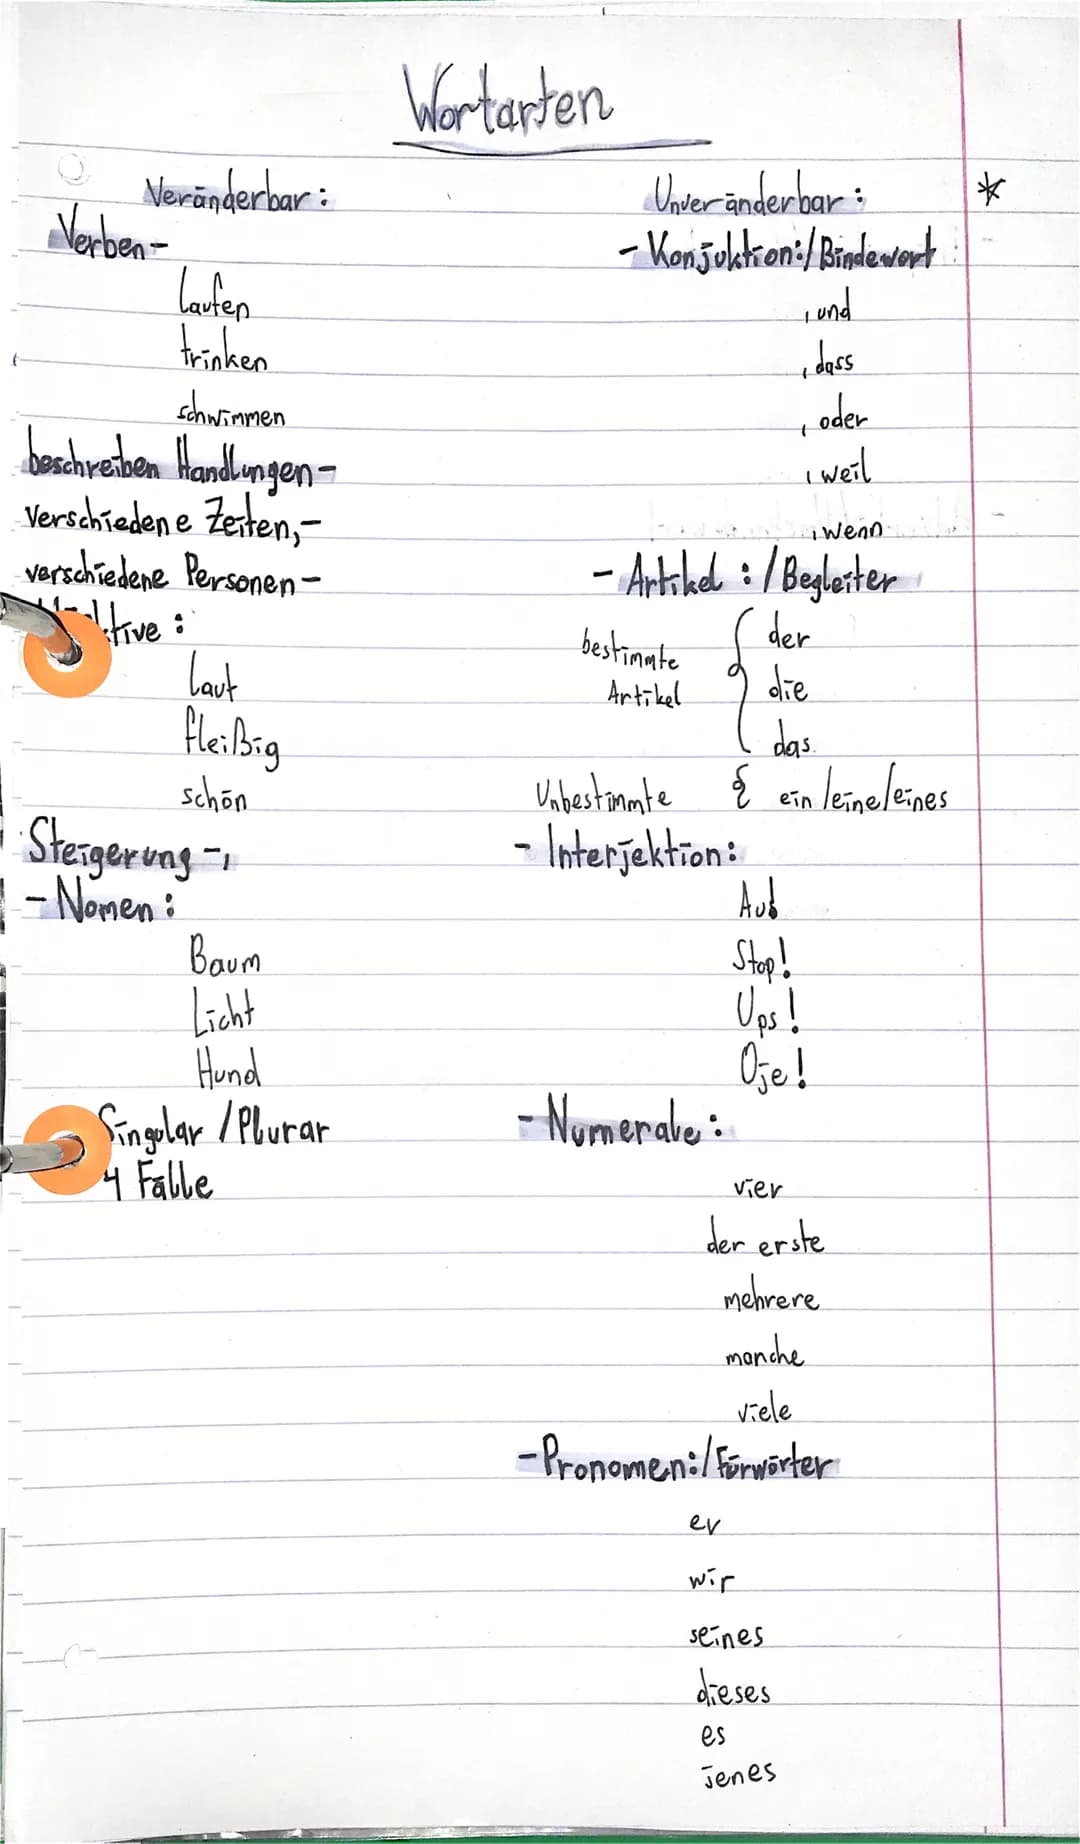 Wortarten
Veränderbar:
Verben-
laufen
trinken
schwimmen
beschreiben Handlungen-
verschiedene Zeiten,-
verschiedene Personen-
:
laut
fleißig
schön
Steigerung-,
-Nomen:
Baum
Licht
Hund
Singular / Plurar
4 Fälle
Unveränderbar: *
- Konjuktion:/Bindewort
, und
, dass
, oder
, weil
, wenn
- Artikel :/Begleiter
bestimmte Artikel { der
die
das
Unbestimmte { ein/eine/eines
- Interjektion:
Stop!
Ups!
Oje!
- Numerale:
vier
der erste
mehrere
manche
viele
-Pronomen:/Fürwörter
er
wir
seines
dieses
es
jenes